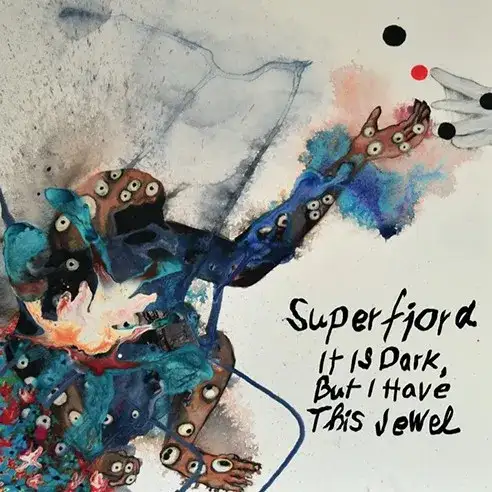 Superfjord
It Is Dark,
But I Have
This Jewel